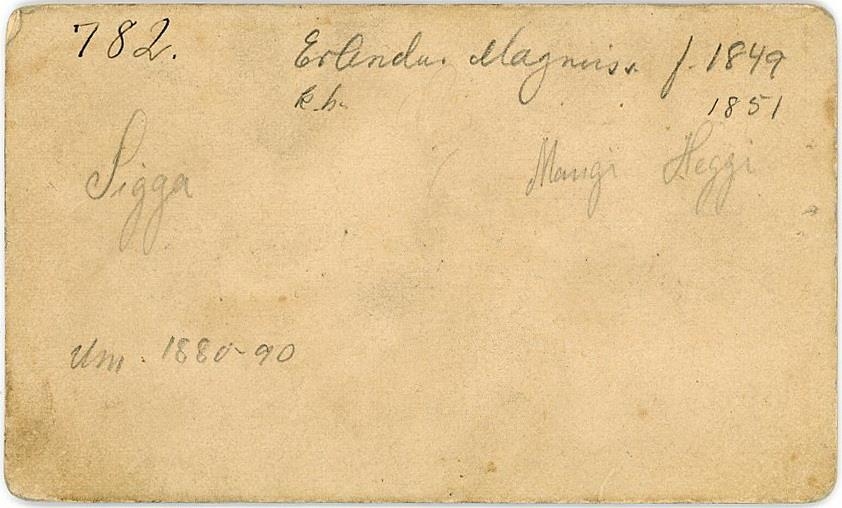 782. Erlendur Magnúss. f. 1849
k.h. 1851
Sigga Mangi Heggi
Um 1880-90